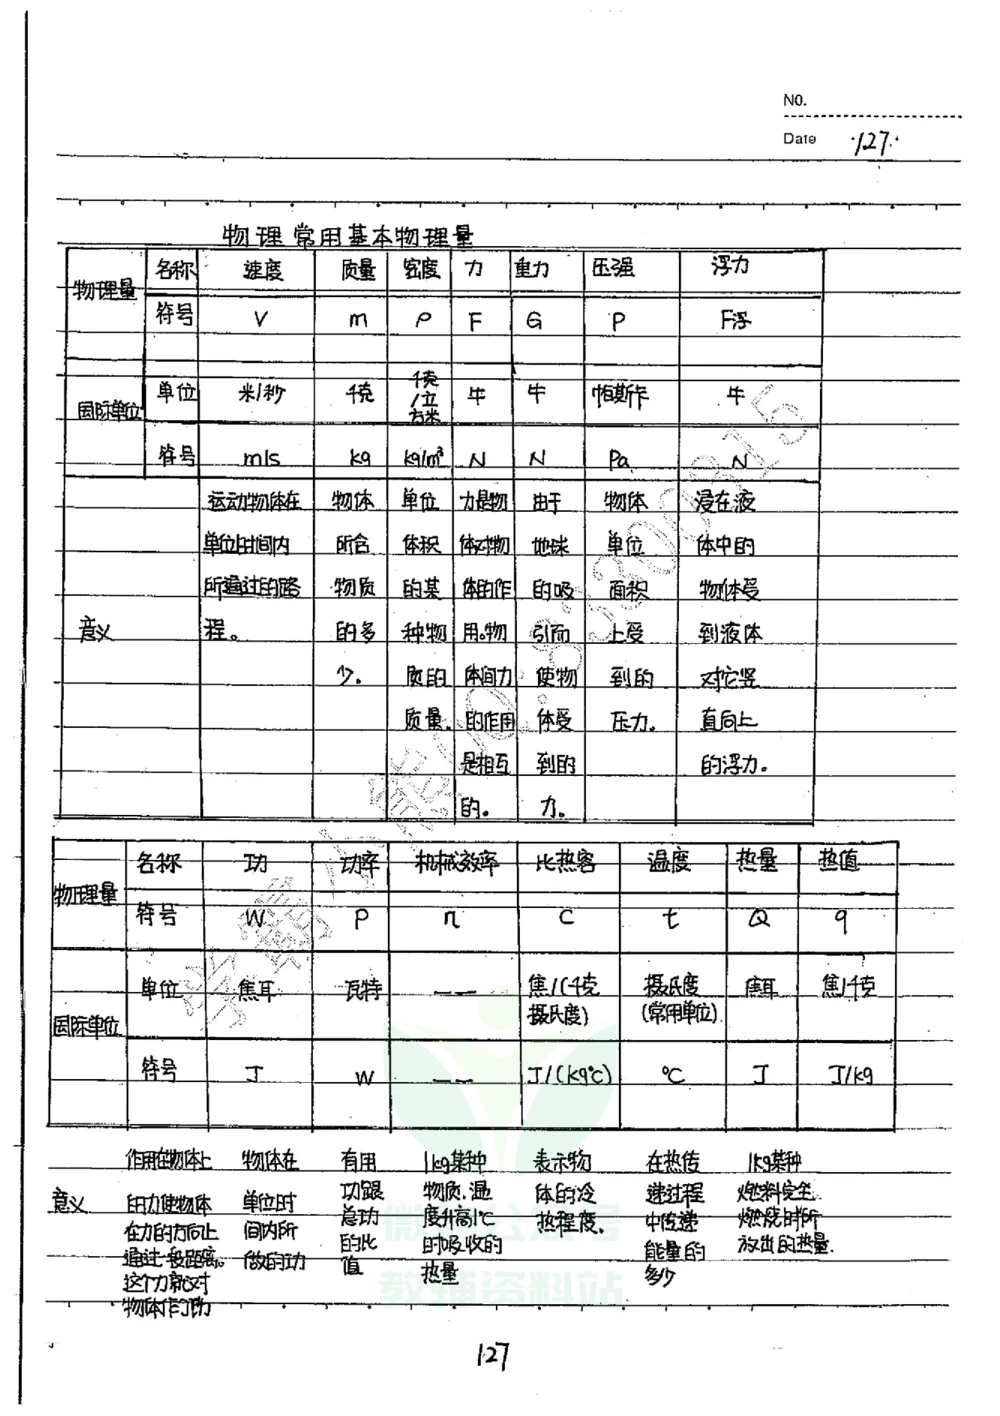 NO.
Date ·127·
物理 常用基本物理量
物理量 名称 速度 质量 密度 力 重力 压强 浮力
符号 V m ρ F G P F浮
国际单位 单位 米/秒 千克 千克/立方米 牛 牛 帕斯卡 牛
符号 m/s kg kg/m³ N N Pa N
意义
运动物体在 物体 单位 力是物 由于 物体 浸在液
单位时间内 所含 体积 体对物 地球 单位 体中的
所通过的路 物质 的某 体的作 的吸 面积 物体受
程。 的多 种物 用。物 引而 上受 到液体
少。 质的 体间力 使物 到的 对它竖
质量。 的作用 体受 压力。 直向上
是相互 到的 的浮力。
的。 力。
物理量 名称 功 功率 机械效率 比热容 温度 热量 热值
符号 W P η C t Q q
国际单位 单位 焦耳 瓦特 —— 焦/(千克 摄氏度 焦耳 焦/千克
摄氏度) (常用单位)
符号 J W —— J/(kg℃) ℃ J J/kg
意义
作用在物体上 物体在 有用 1kg某种 表示物 在热传 1kg某种
的力使物体 单位时 功跟 物质,温 体的冷 递过程 燃料完全
在力的方向上 间内所 总功 度升高1℃ 热程度. 中传递 燃烧时所
通过一段距离。 做的功 的比 时吸收的 能量的 放出的热量.
这个力就对 值 热量 多少
物体作了功
127
学霸小熊QQ:
微信公众号
教辅资料站